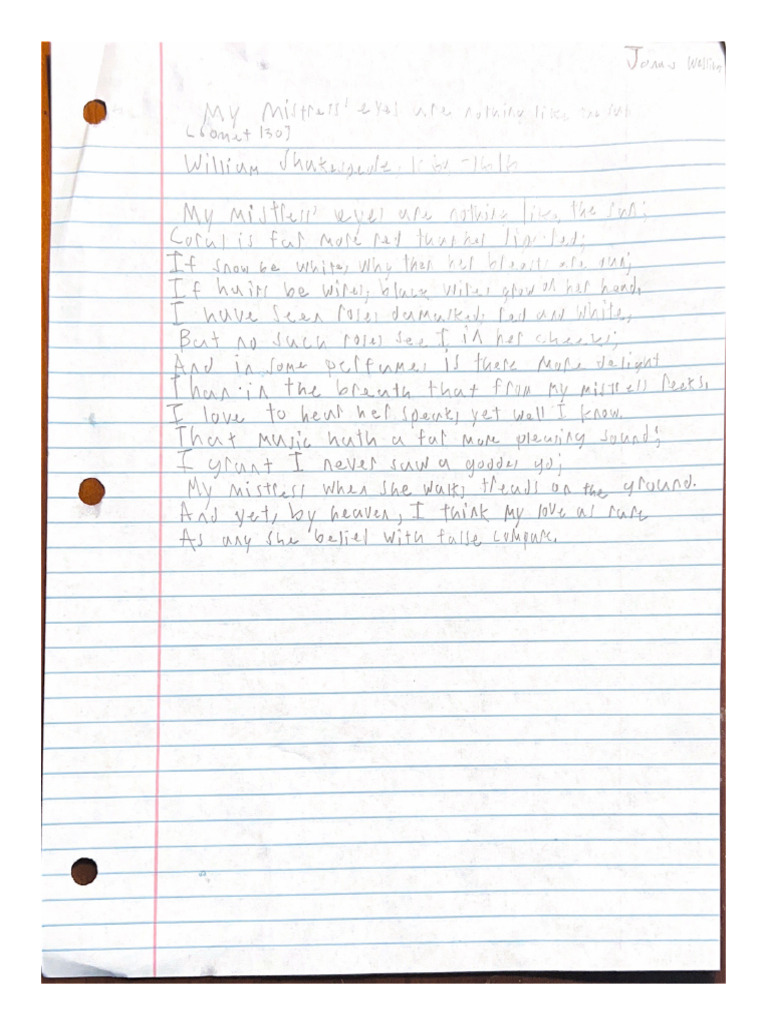 Jonus Wellian
My Mistress' eyes are nothing like the sun
[Sonet 130]
William Shakespeare, -1616
My mistress' eyes are nothing like the sun;
Coral is far more red than her lips led;
If snow be white, why then her breasts are dun;
If hairs be wires, black wires grow on her head.
I have seen roses damasked, red and white,
But no such roses see I in her cheeks;
And in some perfumes is there more delight
Than in the breath that from my mistress reeks.
I love to hear her speak, yet well I know.
That music hath a far more pleasing sound;
I grant I never saw a goddes go;
My mistress when she walks treads on the ground.
And yet, by heaven, I think my love as rare
As any she belied with false compare.